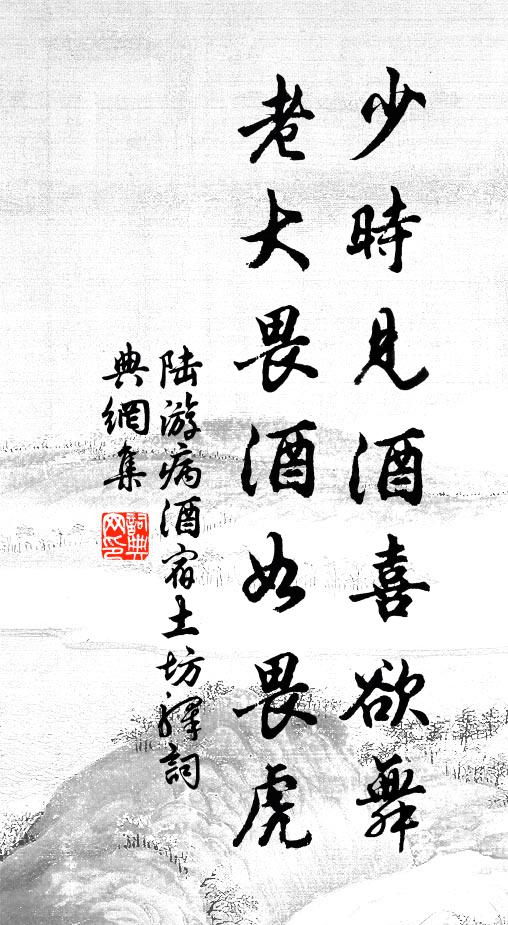 少時見酒喜欲舞
老大畏酒如畏虎
陆游病酒宿土坊驛詞
典網集
詞典